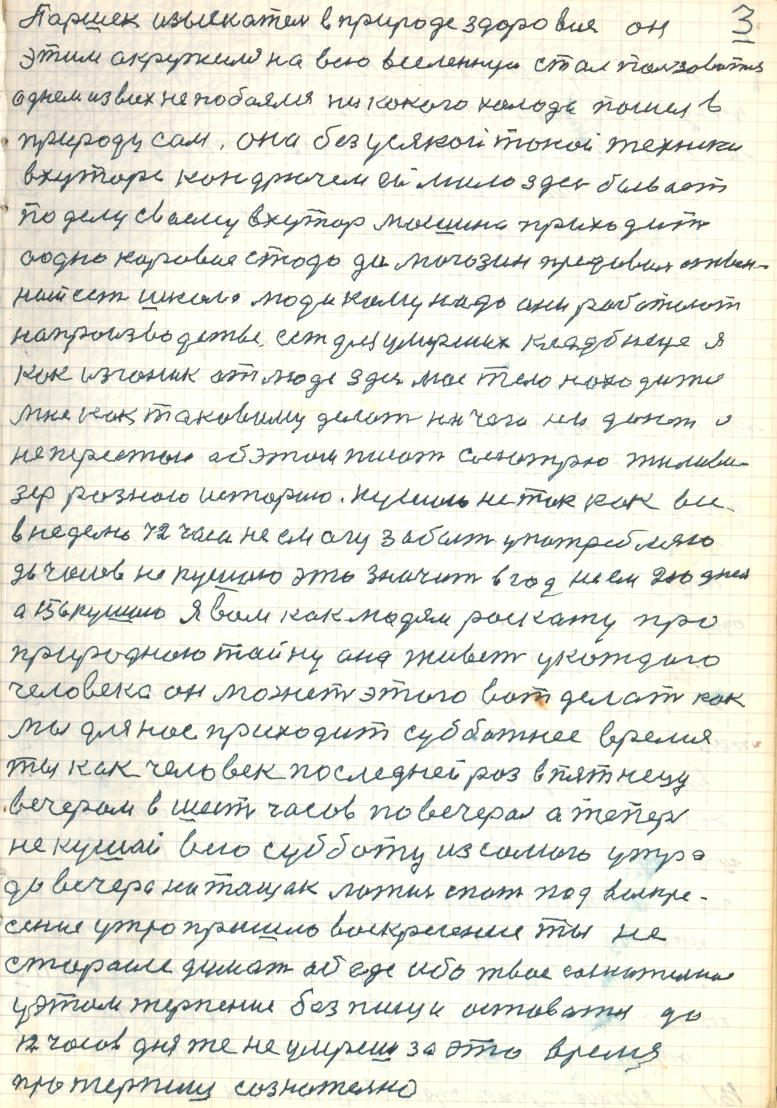 Паршек изыскател в природе здоровия он 3
этим окружился на всю вселенную стал ползоватся
однем из всех не побоялся ни какого холода пошел в
природу сам, она без усякой такой техники
в хуторе кондрючем ей мило здес бывает
по делу своему в хутор машина приходит
водно коровие стадо да магазин продовол
ест школа люди кому надо они работают
на производстве, ест для умерших кладбище я
как изгоник от люде здес мое тело находится
мне как таковому делат ни чего не дают я
не перестаю об этом писат смотрю тиливи-
зер разною историю. кушаю не так как все
в неделю 72 часа не ем могу забыт употребляю
часов не кушаю это значит в год не ем 210 дней
а 156 кушаю Я вам как людям роскажу про
природною тайну она живет у каждого
человека он может этого вот делат как
мы для нас приходит субботнее время
ты как человек последней раз в пятнецу
вечером в шест часов повечерял а тепер
не кушай всю субботу из самого утра
до вечера натащак ложис спат под воскре-
сение утро пришло воскресение ты не
старайся думат об еде ибо твое сознателное
у этом терпение без пищи остоватся до
12 часов дня же не умреш за это время
протерпиш сознателно